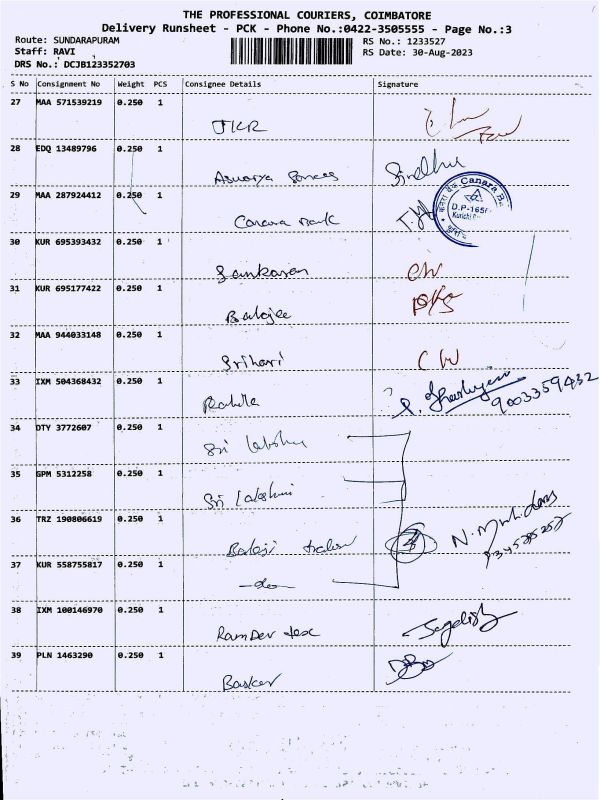 THE PROFESSIONAL COURIERS, COIMBATORE
Delivery Runsheet - PCK - Phone No.:0422-3505555 - Page No.:3
Route: SUNDARAPURAM RS No.: 1233527
Staff: RAVI RS Date: 30-Aug-2023
DRS No.: DCJB123352703
S No Consignment No Weight PCS Consignee Details Signature
27 MAA 571539219 0.250 1
JKR
28 EDQ 13489796 0.250 1
Sindhu
29 MAA 287924412 0.250 1
Canara Bank
केनरा बैंक Canara
D.P-165
Kurichi
30 KUR 695393432 0.250 1
Sankaran CW
31 KUR 695177422 0.250 1
Balajee
32 MAA 944033148 0.250 1
Srihari CW
33 IXM 504368432 0.250 1
9003359432
34 DTY 3772607 0.250 1
Sri Lakshmi
35 GPM 5312258 0.250 1
Sri Lakshmi
36 TRZ 190806619 0.250 1
Balaji
37 KUR 558755817 0.250 1
-do-
38 IXM 100146970 0.250 1
RamDev tex
39 PLN 1463290 0.250 1
Basker